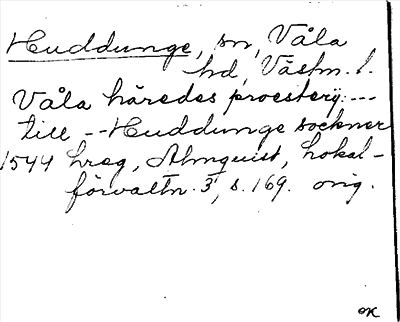 Huddunge, sn, Våla
hd, Västm. l.
Våla häredes proesterij: ---
till -- Huddunge sockner
1544 hreg, Almquist, Lokal-
förvaltn. 3, s. 169. orig.
OK